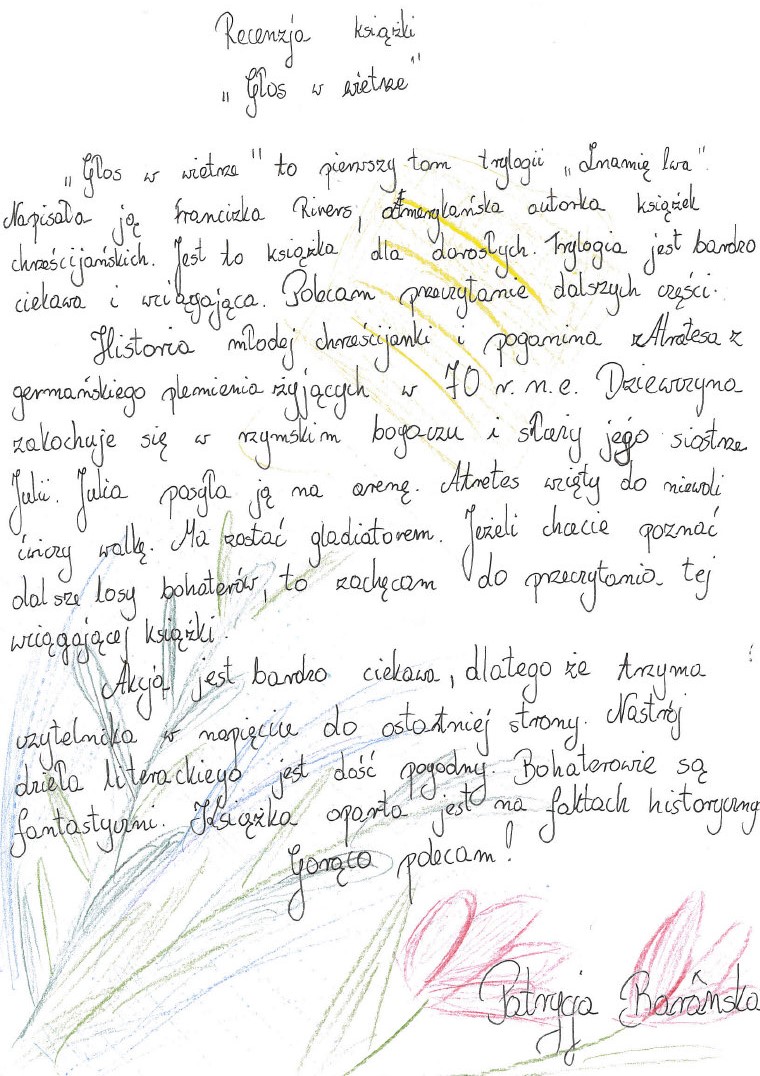 Recenzja książki
„Głos w wietrze"
„Głos w wietrze" to pierwszy tom trylogii „Znamię lwa".
Napisała ją Francizka Rivers, amerykańska autorka książek
chrześcijańskich. Jest to książka dla dorosłych. Trylogia jest bardzo
ciekawa i wciągająca. Polecam przeczytanie dalszych części.
Historia młodej chrześcijanki i poganina Atretesa z
germańskiego plemienia żyjących w 70 r. n. e. Dziewczyna
zakochuje się w rzymskim bogaczu i służy jego siostrze
Julii. Julia posyła ją na arenę. Atretes wzięty do niewoli
ćwiczy walkę. Ma zostać gladiatorem. Jeżeli chcecie poznać
dalsze losy bohaterów, to zachęcam do przeczytania tej
wciągającej książki.
Akcja jest bardzo ciekawa, dlatego że trzyma
czytelnika w napięciu do ostatniej strony. Nastrój
dzieła literackiego jest dość pogodny. Bohaterowie są
fantastyczni. Książka oparta jest na faktach historyczny
Gorąco polecam!
Patrycja Barańska